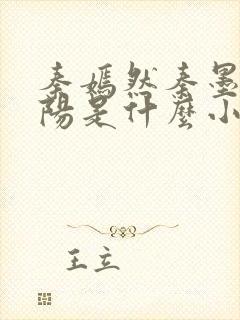 秦嫣然秦墨
陽是什麼小
王立